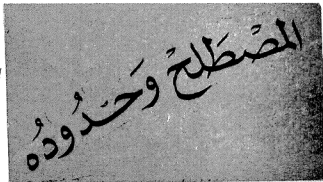 المصْطَلحْ وَحُدُودُه